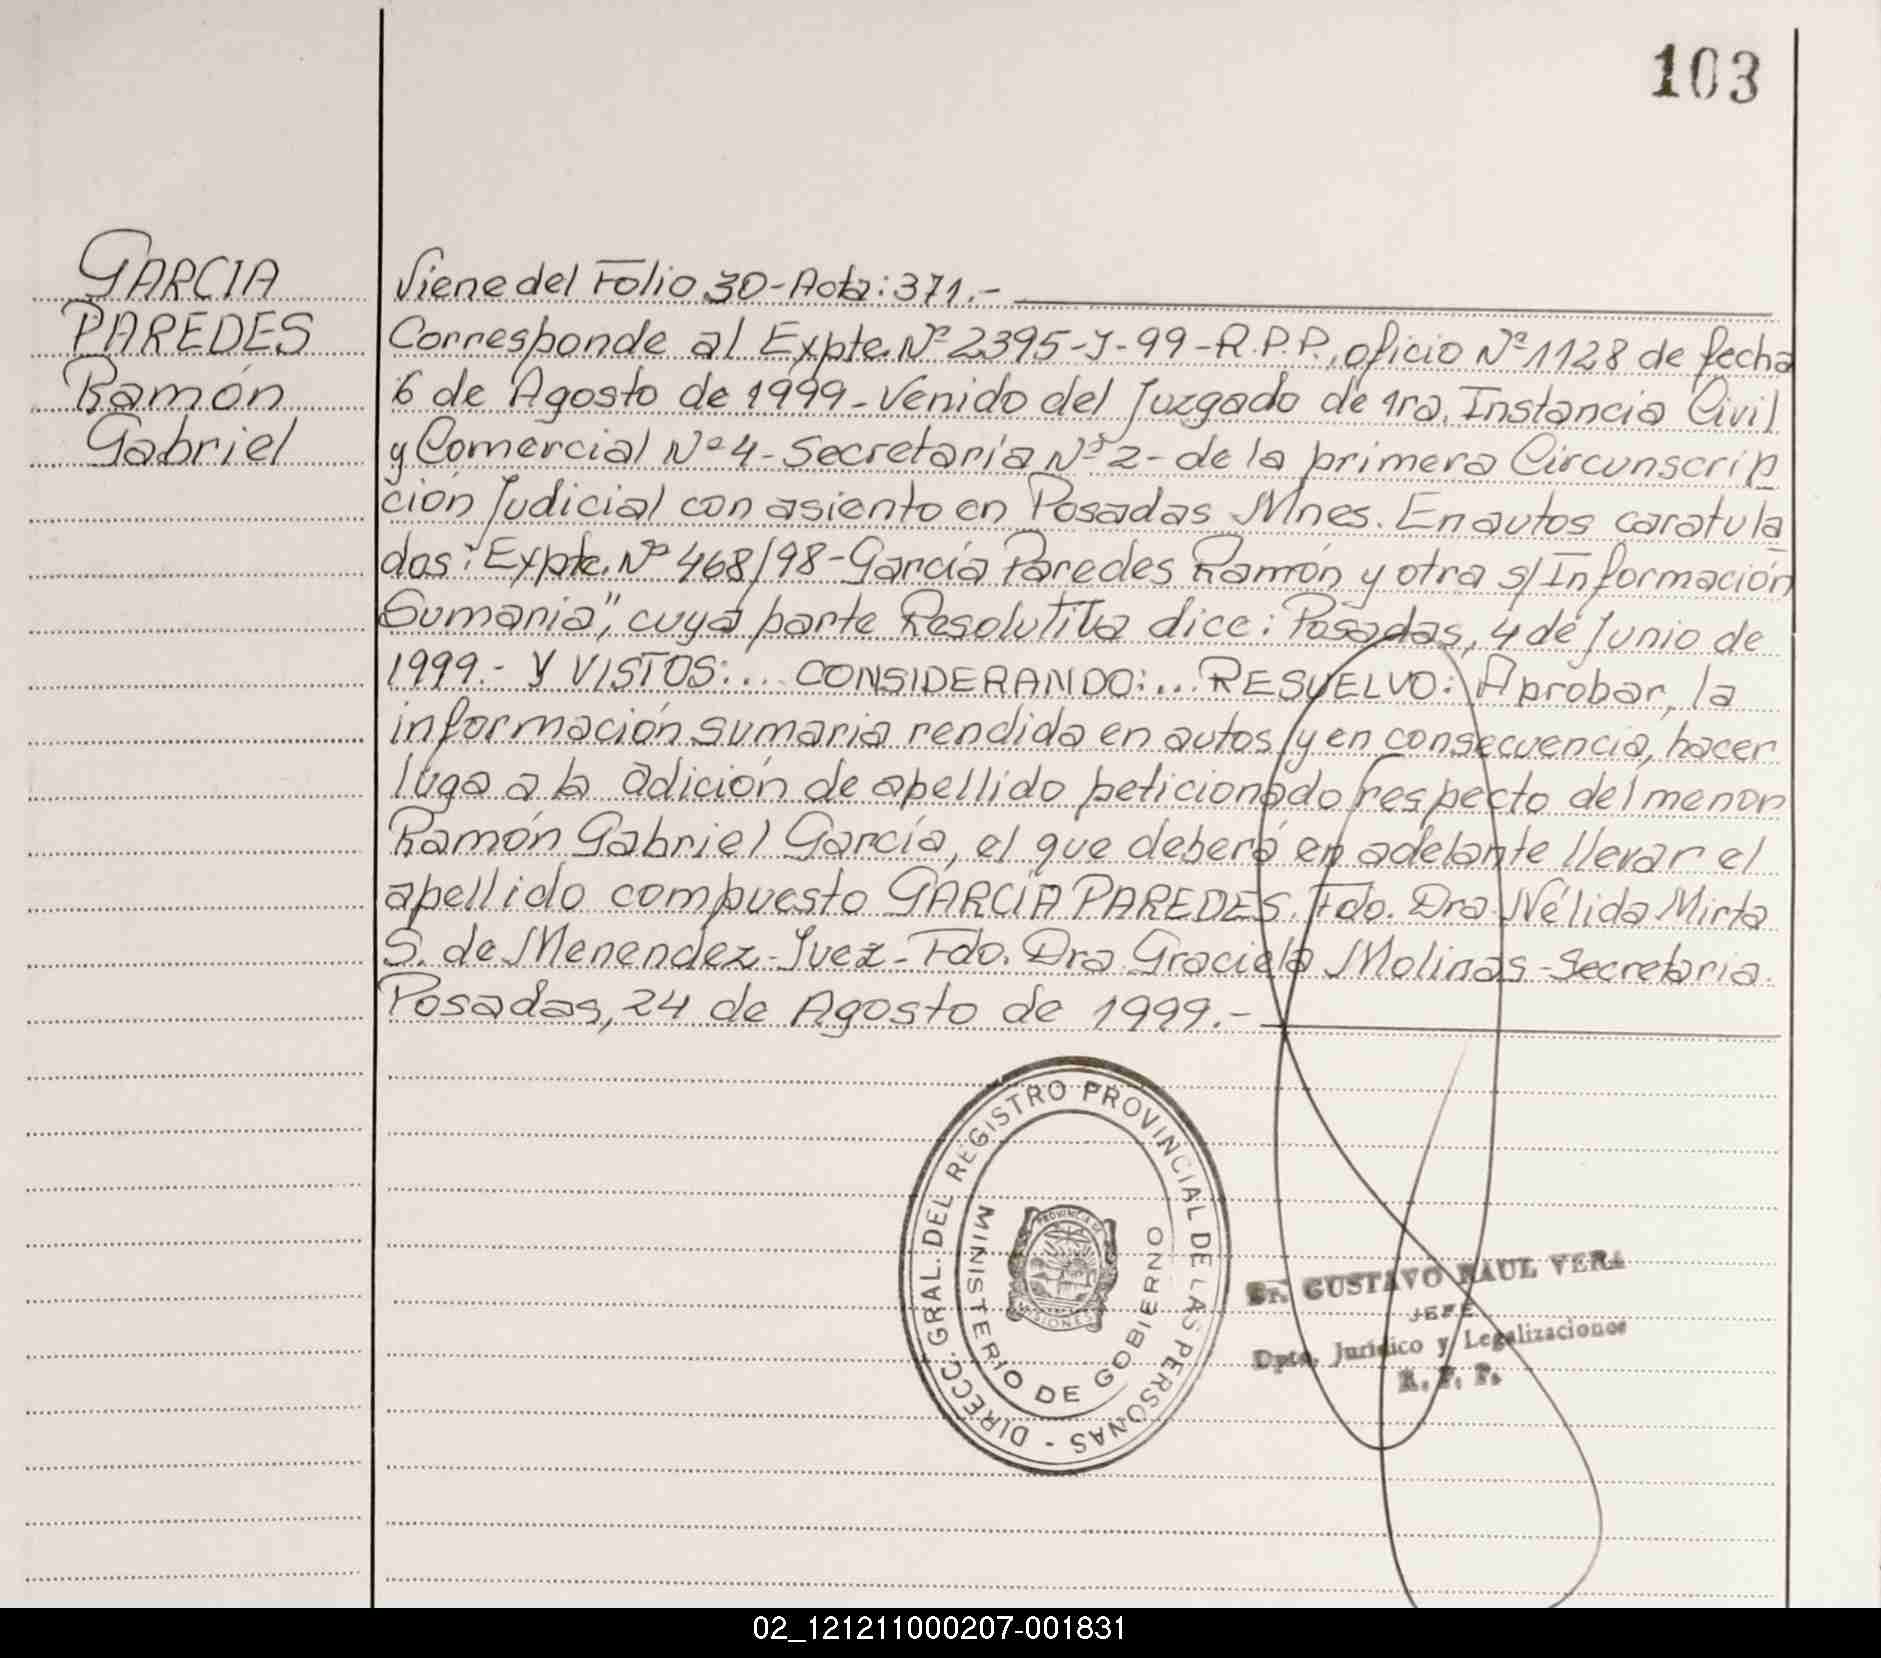 103
GARCIA
PAREDES
Ramón
Gabriel
Viene del Folio 30-Acta: 371.-
Corresponde al Expte. Nº 2395-J-99-R.P.P., oficio Nº 1128 de fecha
6 de Agosto de 1999-Venido del Juzgado de 1ra. Instancia Civil
y Comercial Nº 4-Secretaría Nº 2- de la primera Circunscrip
ción Judicial con asiento en Posadas Mnes. En autos caratula
dos: Expte. Nº 468/98-García Paredes Ramón y otra s/Información
Sumaria", cuya parte Resolutiva dice: Posadas, 4 de Junio de
1999.- Y VISTOS:... CONSIDERANDO:... RESUELVO: Aprobar, la
información sumaria rendida en autos, y en consecuencia, hacer
luga a la adición de apellido peticionado respecto del menor
Ramón Gabriel García, el que deberá en adelante llevar el
apellido compuesto GARCÍA PAREDES. Fdo. Dra. Nélida Mirta
S. de Menendez-Juez-Fdo. Dra. Graciela Molinas-Secretaria.
Posadas, 24 de Agosto de 1999.-
DIRECC. GRAL. DEL REGISTRO PROVINCIAL DE LAS PERSONAS -
MINISTERIO DE GOBIERNO
PROVINCIA DE
MISIONES
Sr. GUSTAVO RAUL VERA
JEFE
Dpto. Jurídico y Legalizaciones
R. P. P.
02_121211000207-001831